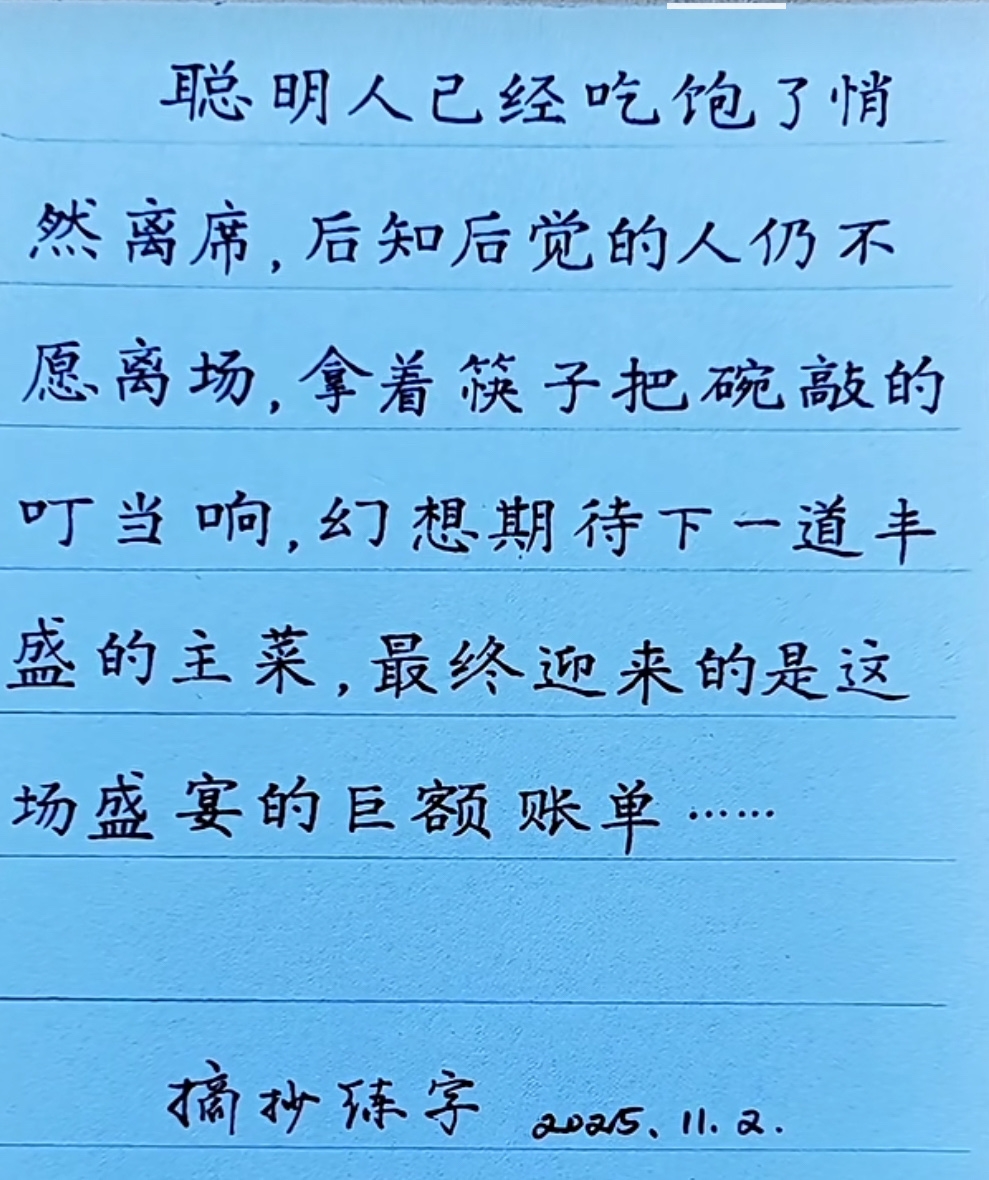 聪明人已经吃饱了悄
然离席,后知后觉的人仍不
愿离场,拿着筷子把碗敲的
叮当响,幻想期待下一道丰
盛的主菜,最终迎来的是这
场盛宴的巨额账单……
摘抄练字 2025、11.2.